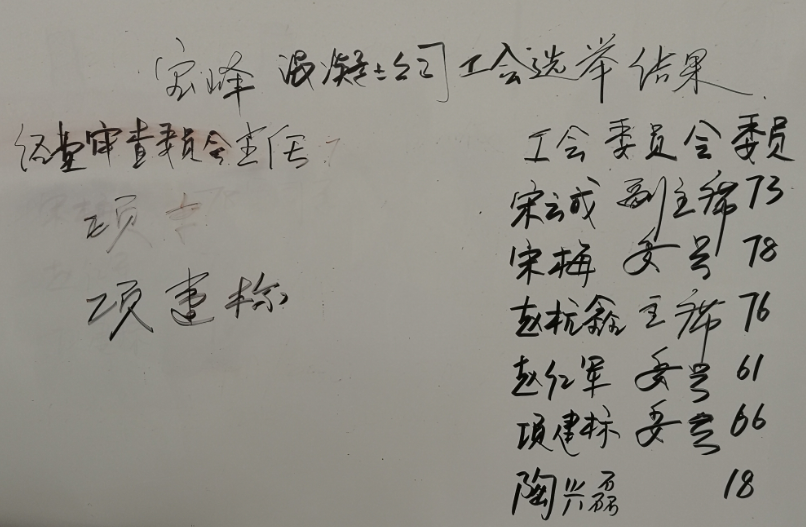 宏峰混凝土公司工会选举结果
经查审查委员会主任
项
项建标
工会委员会委员
宋云成 副主席 73
宋梅 委员 78
赵杭鑫 主席 76
赵仁军 委员 61
项建标 委员 66
陶兴磊 18